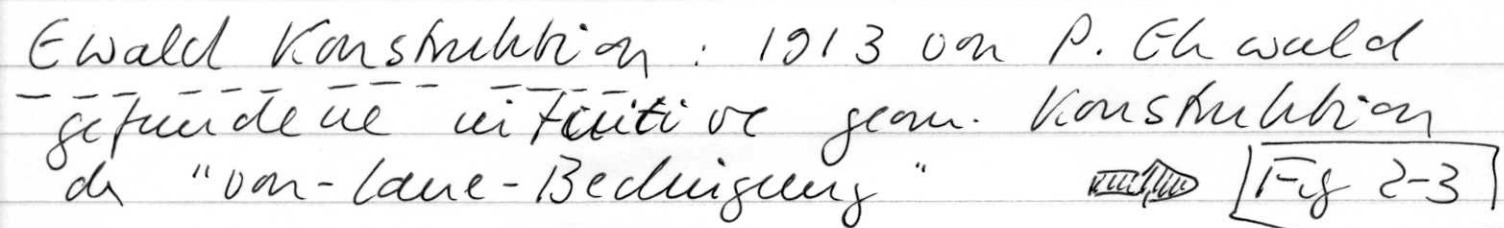 Ewald Konstruktion : 1913 von P. Ehwald
gefundene intuitive geom. Konstruktion
der "von-Laue-Bedingung" Fig 2-3